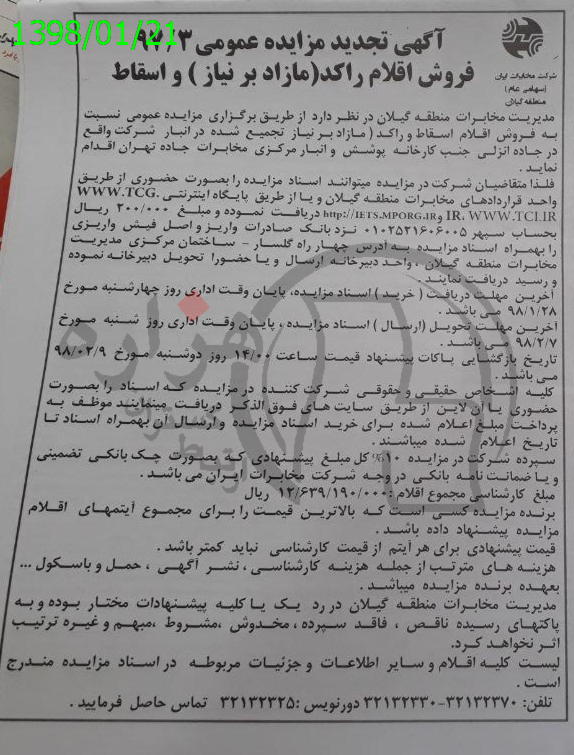 1398/01/21
آگهی تجدید مزایده عمومی
فروش اقلام راکد(مازاد بر نیاز ) و اسقاط
شرکت مخابرات ایران
(سهامی عام)
منطقه گیلان
مدیریت مخابرات منطقه گیلان در نظر دارد از طریق برگزاری مزایده عمومی نسبت
به فروش اقلام اسقاط و راکد ( مازاد بر نیاز تجمیع شده در انبار شرکت واقع
در جاده انزلی جنب کارخانه پوشش و انبار مرکزی مخابرات جاده تهران اقدام
نماید .
فلذا متقاضیان شرکت در مزایده میتوانند اسناد مزایده را بصورت حضوری از طریق
واحد قراردادهای مخابرات منطقه گیلان و یا از طریق پایگاه اینترنتی WWW.TCG.
IR، WWW.TCI.IR و http://IETS.MPORG.IR دریافت نموده و مبلغ ۲۰۰/۰۰۰ ریال
بحساب سپهر ۰۱۰۲۵۲۱۶۰۶۰۰۵ نزد بانک صادرات واریز و اصل فیش واریزی
را بهمراه اسناد مزایده به آدرس چهار راه گلسار - ساختمان مرکزی مدیریت
مخابرات منطقه گیلان ، واحد دبیرخانه ارسال و یا حضورا تحویل دبیرخانه نموده
و رسید دریافت نمایند .
آخرین مهلت دریافت ( خرید ) اسناد مزایده، پایان وقت اداری روز چهارشنبه مورخ
۹۸/۱/۲۸ می باشد .
آخرین مهلت تحویل (ارسال ) اسناد مزایده ، پایان وقت اداری روز شنبه مورخ
۹۸/۲/۷ می باشد .
تاریخ بازگشایی پاکات پیشنهاد قیمت ساعت ۱۴/۰۰ روز دوشنبه مورخ ۹۸/۰۲/۹
می باشد .
کلیه اشخاص حقیقی و حقوقی شرکت کننده در مزایده که اسناد را بصورت
حضوری یا آن لاین از طریق سایت های فوق الذکر دریافت مینمایند موظف به
پرداخت مبلغ اعلام شده برای خرید اسناد مزایده و ارسال آن بهمراه اسناد تا
تاریخ اعلام شده میباشند .
سپرده شرکت در مزایده ۱۰% کل مبلغ پیشنهادی که بصورت چک بانکی تضمینی
و یا ضمانت نامه بانکی در وجه شرکت مخابرات ایران می باشد .
مبلغ کارشناسی مجموع اقلام : ۱۲/۶۳۹/۱۹۰/۰۰۰ ریال
برنده مزایده کسی است که بالاترین قیمت را برای مجموع آیتمهای اقلام
مزایده پیشنهاد داده باشد .
قیمت پیشنهادی برای هر آیتم از قیمت کارشناسی نباید کمتر باشد .
هزینه های مترتب از جمله هزینه کارشناسی ، نشر آگهی ، حمل و باسکول ...
بعهده برنده مزایده میباشد .
مدیریت مخابرات منطقه گیلان در رد یک یا کلیه پیشنهادات مختار بوده و به
پاکتهای رسیده ناقص ، فاقد سپرده ، مخدوش ،مشروط ،مبهم و غیره ترتیب
اثر نخواهد کرد.
لیست کلیه اقلام و سایر اطلاعات و جزئیات مربوطه در اسناد مزایده مندرج
است .
تلفن: ۳۲۱۳۲۳۷۰-۳۲۱۳۲۳۳۰ دورنویس :۳۲۱۳۲۳۲۵ تماس حاصل فرمایید .
هزاره